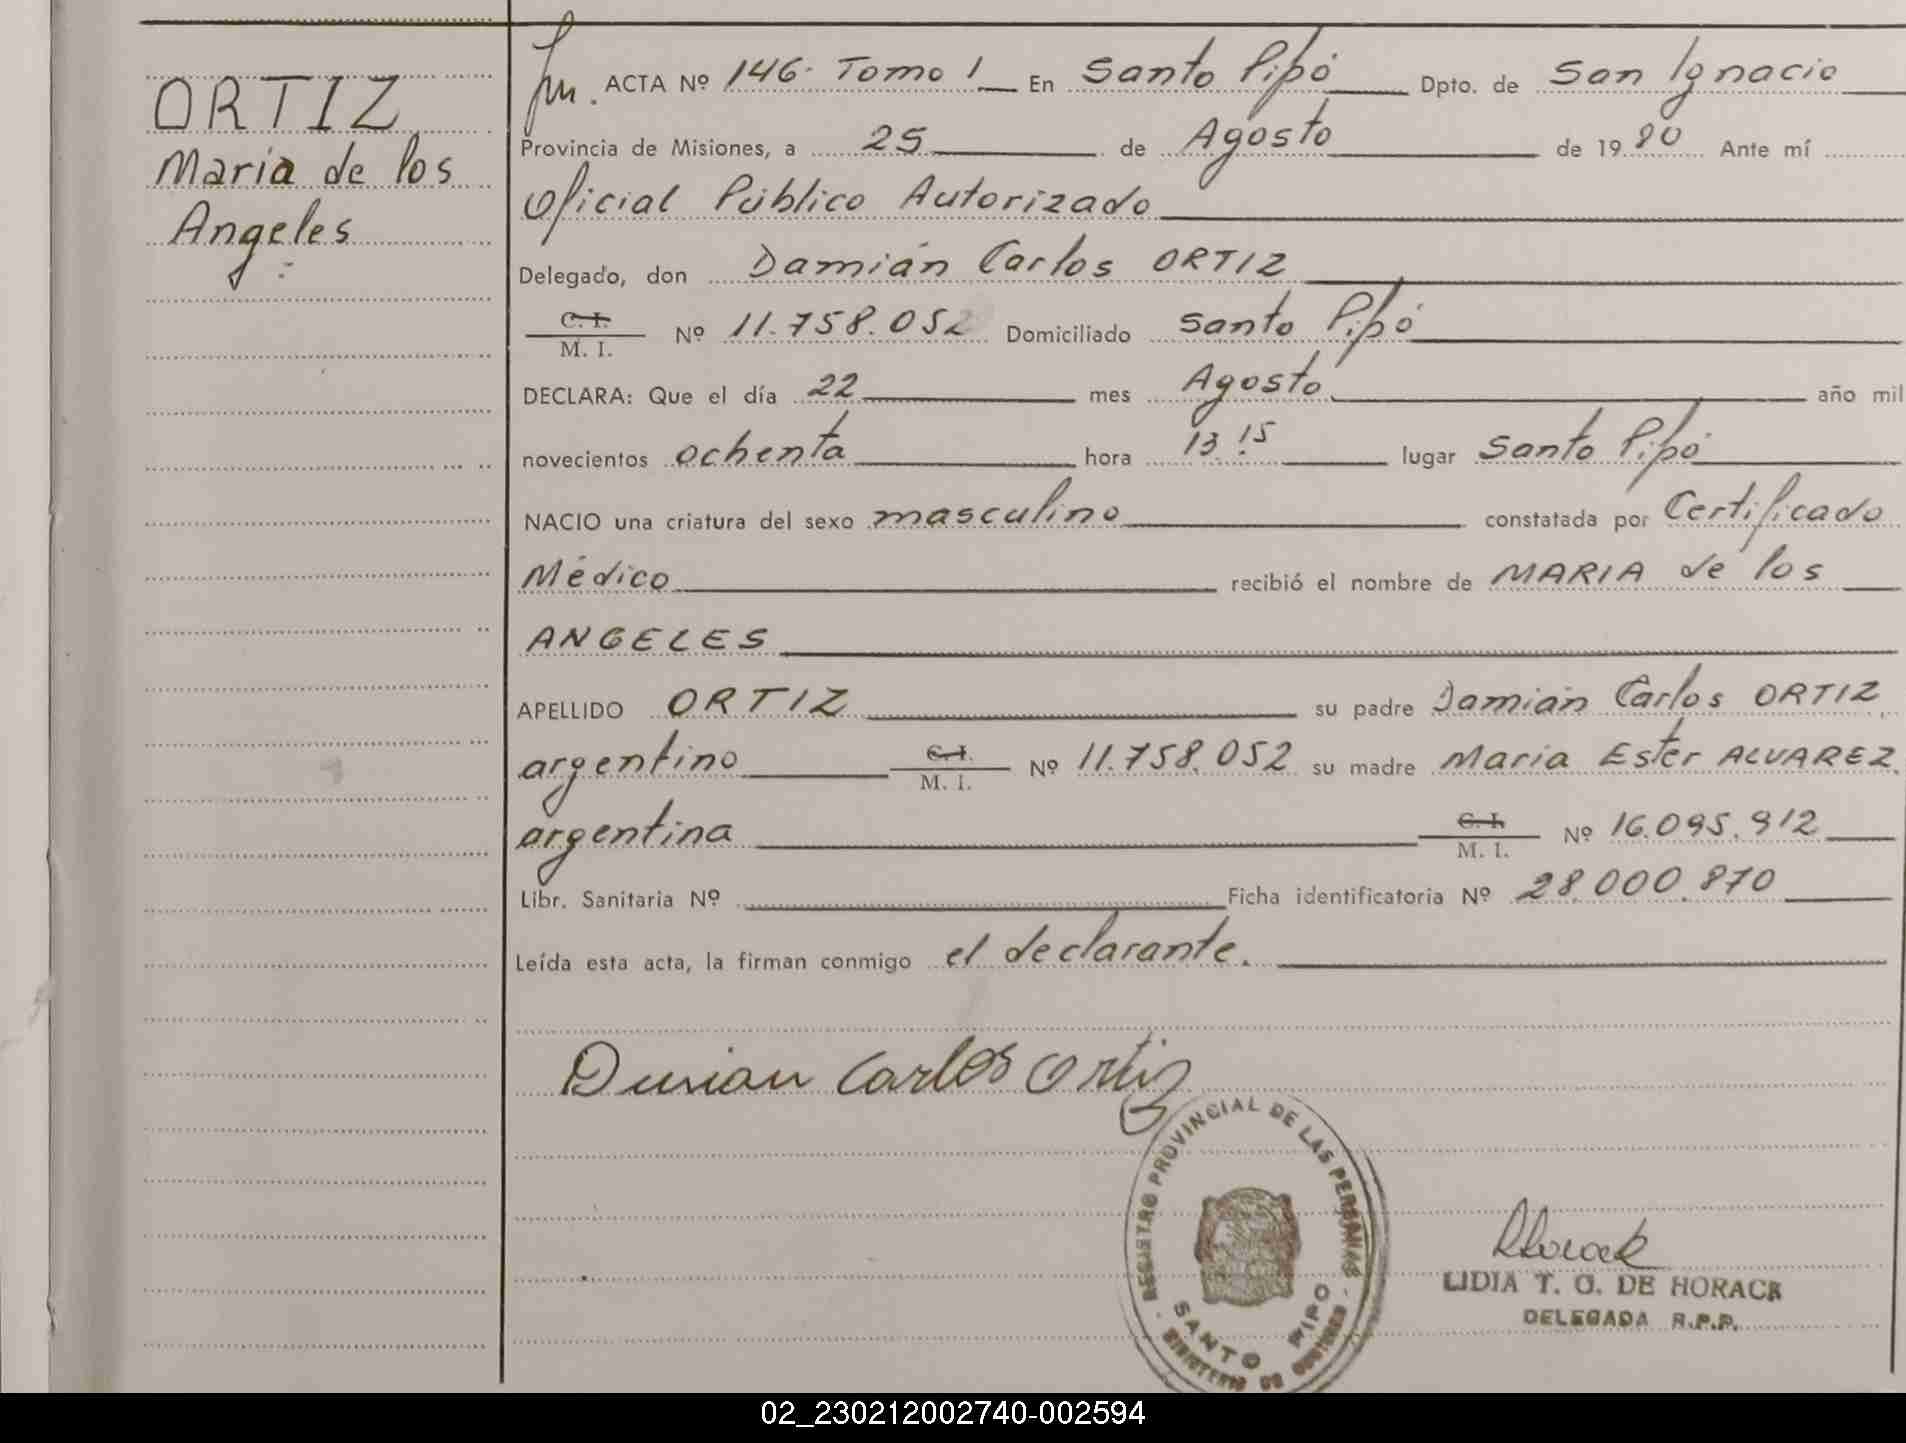 ORTIZ
Maria de los
Angeles
ACTA Nº 146. Tomo 1 En Santo Pipó Dpto. de San Ignacio
Provincia de Misiones, a 25 de Agosto de 1980 Ante mí
Oficial Público Autorizado
Delegado, don Damián Carlos ORTIZ
C. I.
M. I. Nº 11.758.052 Domiciliado Santo Pipó
DECLARA: Que el día 22 mes Agosto año mil
novecientos ochenta hora 13.15 lugar Santo Pipó
NACIO una criatura del sexo masculino constatada por Certificado
Médico recibió el nombre de MARIA de los
ANGELES
APELLIDO ORTIZ su padre Damián Carlos ORTIZ
argentino C. I. M. I. Nº 11.758.052 su madre Maria Ester ALVAREZ
argentina C. I. M. I. Nº 16.095.912
Libr. Sanitaria Nº Ficha identificatoria Nº 28.000.870
Leída esta acta, la firman conmigo el declarante.
Carlos Ortiz
REGISTRO PROVINCIAL DE LAS PERSONAS
SANTO PIPO
MINISTERIO DE GOBIERNO
LIDIA T. G. DE HORACK
DELEGADA R.P.P.
02_230212002740-002594